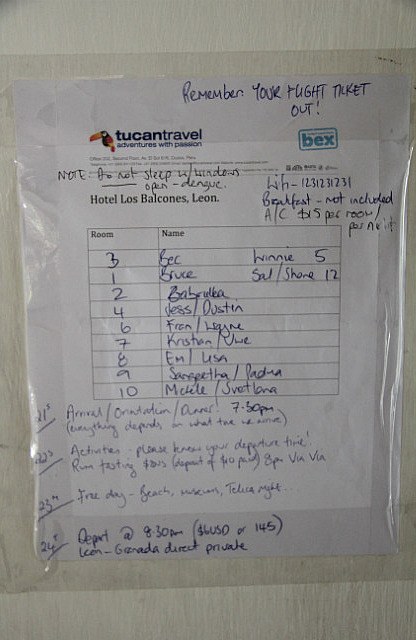 Remember: YOUR FLIGHT TICKET
OUT!
tucantravel
adventures with passion
bex
NOTE: Do not sleep w/ windows
open - dengue.
Wifi - 1231231231
Breakfast - not included
A/C $15 per room/
per night
Hotel Los Balcones, Leon.
Room Name
3 Bec Winnie 5
1 Bruce Sal/Shane 12
2 Babrulka
4 Jess/Dustin
6 Fran/Wayne
7 Kristian/Uwe
8 Em/Lisa
9 Sangeetha/Padma
10 Michele/Svetlana
21st Arrival/Orientation/Dinner! 7:30pm
(everything depends on what time we arrive)
22nd Activities - please know your departure time!
Rum tasting (deposit of $10 paid) 8pm Via Via
23rd Free day - Beach, museum, Telica night...
24th Depart @ 8:30am ($6USD or 145)
Leon - Granada direct private